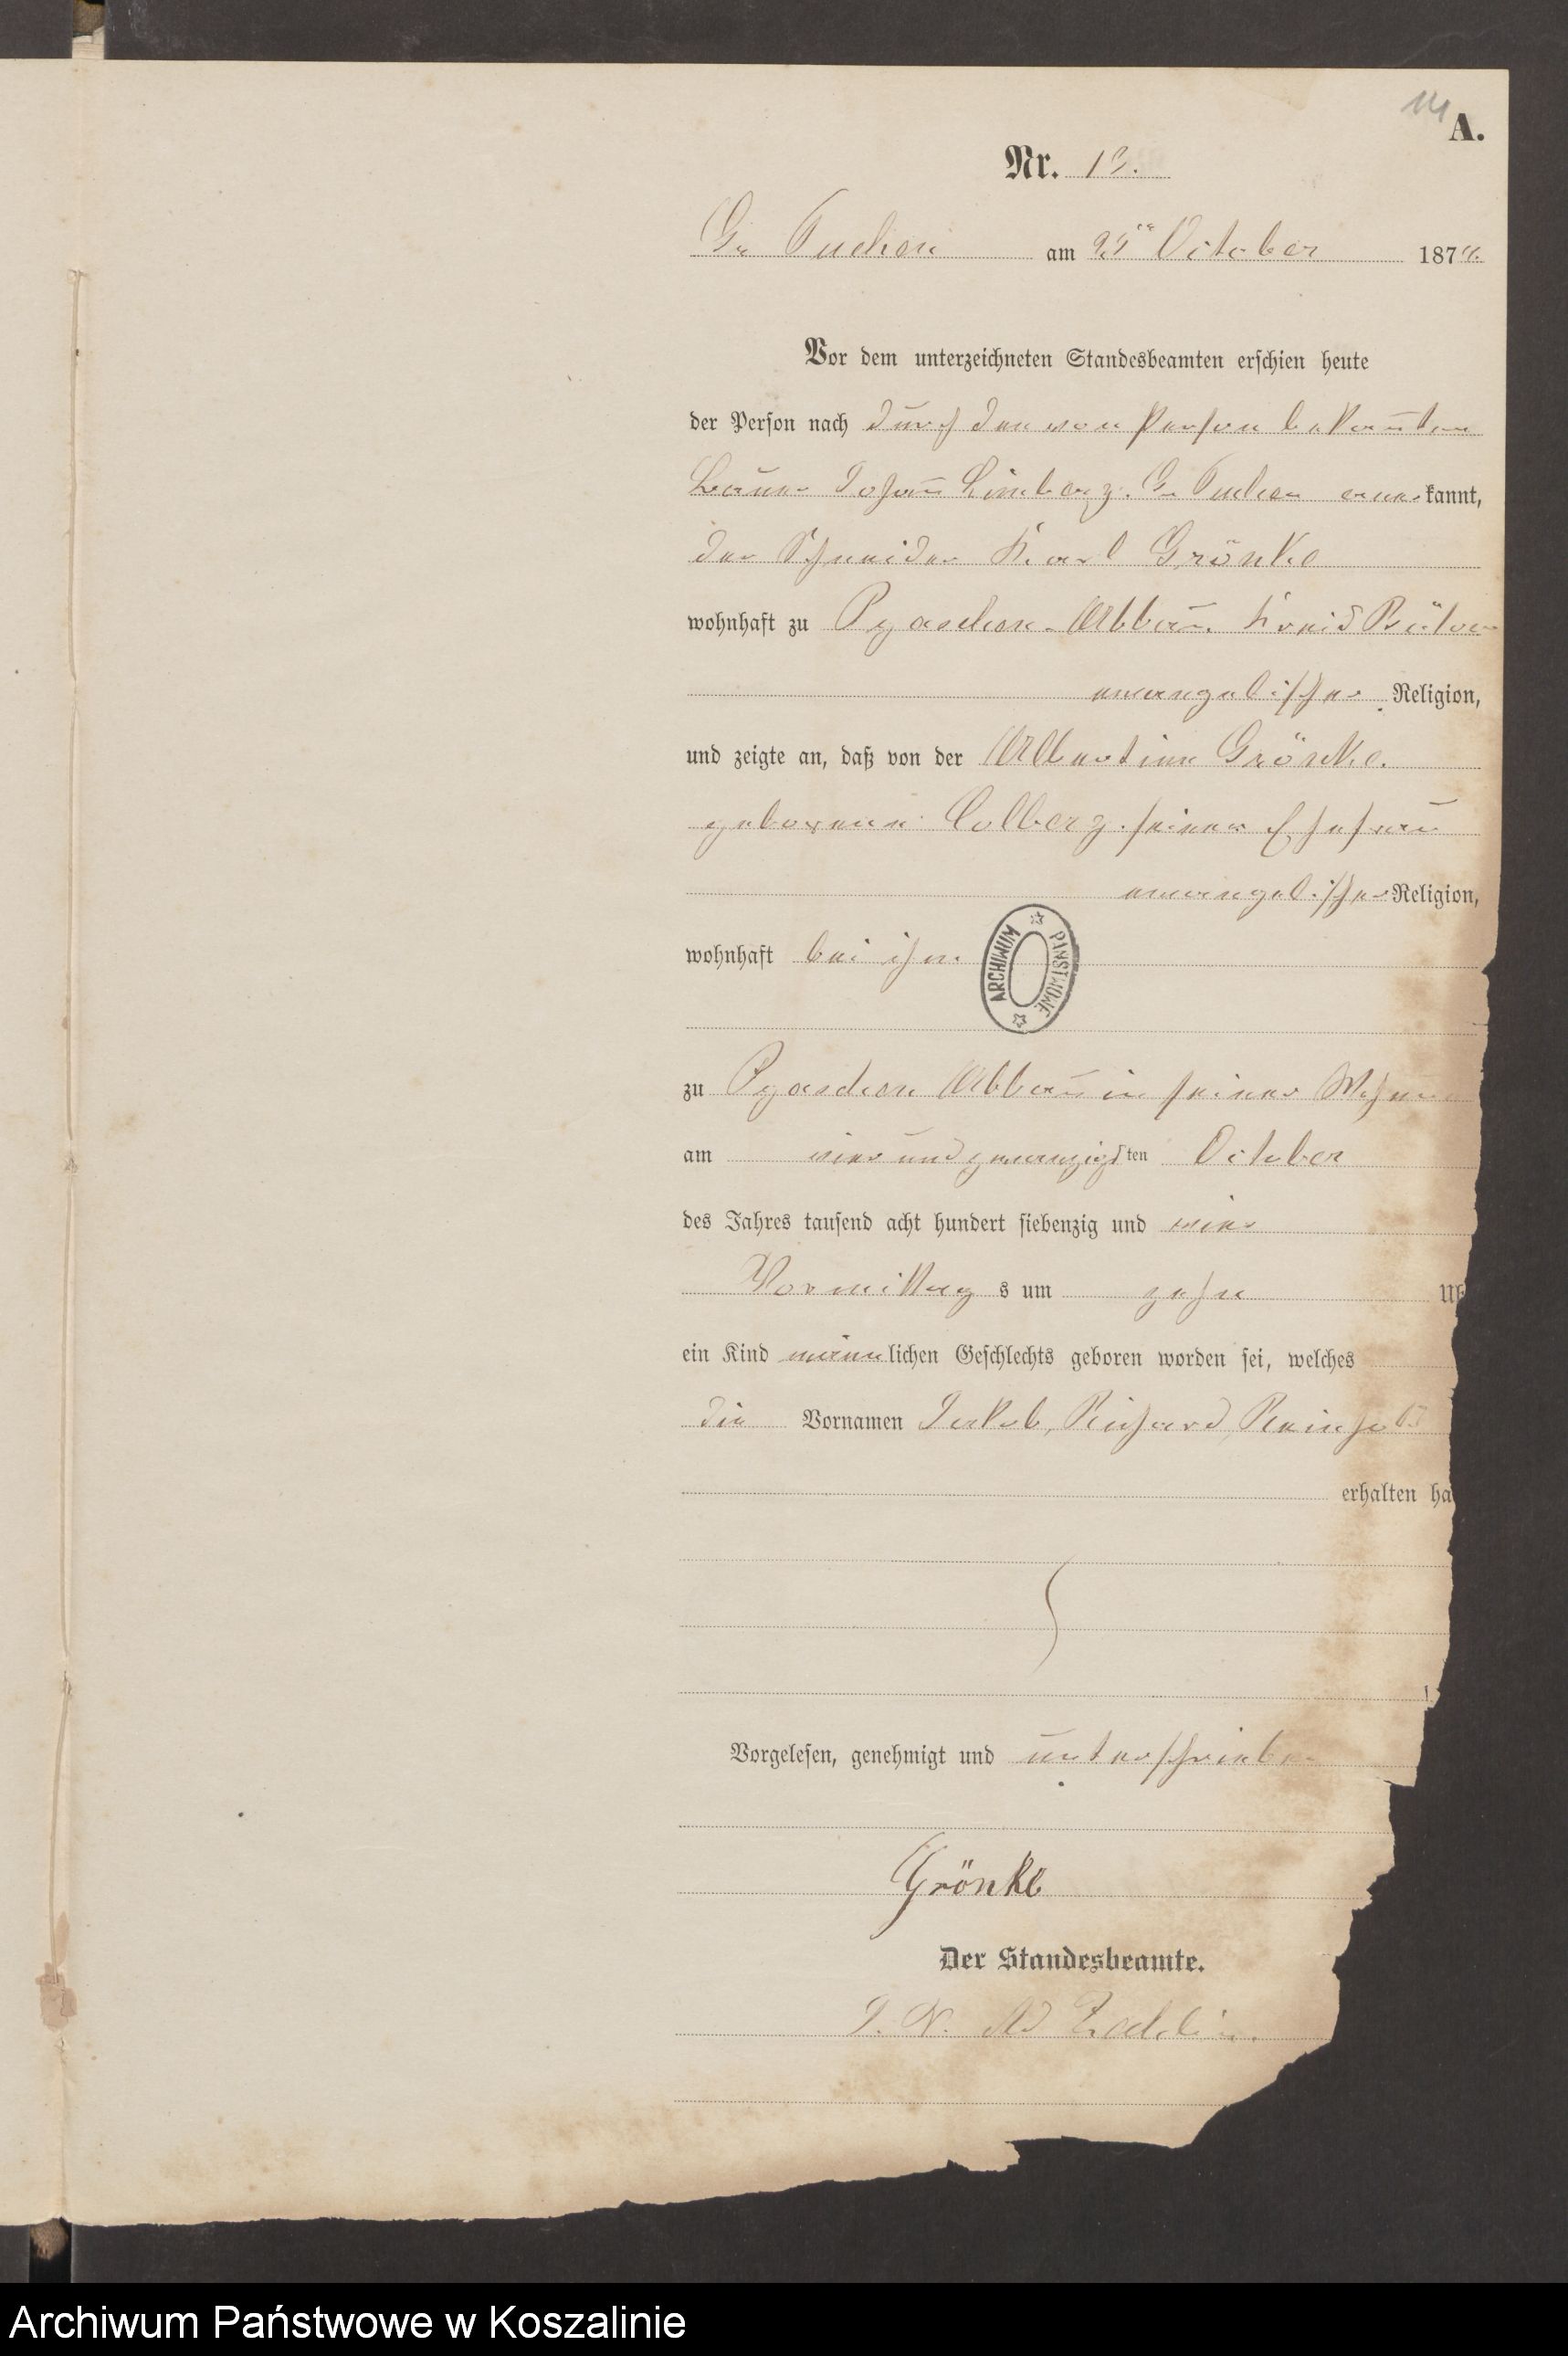 14
A.
Nr. 13.
Gr Tuchen am 25ten October 1874.
Vor dem unterzeichneten Standesbeamten erschien heute
der Person nach durch den von Person bekannten
Bauer Johann Limberg z. Gr Tuchen aner kannt,
der Schneider Karl Grönke
wohnhaft zu Pyaschen-Abbau, Kreis Bütow
evangelischer Religion,
und zeigte an, daß von der Albertine Grönke
geborene Colberg seiner Ehefrau
evangelischer Religion,
wohnhaft bei ihm
ARCHIWUM PAŃSTWOWE
zu Pyaschen Abbau in seiner Wohnung
am vier und zwanzigsten October
des Jahres tausend acht hundert siebenzig und vier
Vormittag s um zehn Uh
ein Kind männlichen Geschlechts geboren worden sei, welches
die Vornamen Jakob, Richard, Reinhold
erhalten ha
Vorgelesen, genehmigt und unterschrieben
Grönke
Der Standesbeamte.
J. V.
Archiwum Państwowe w Koszalinie